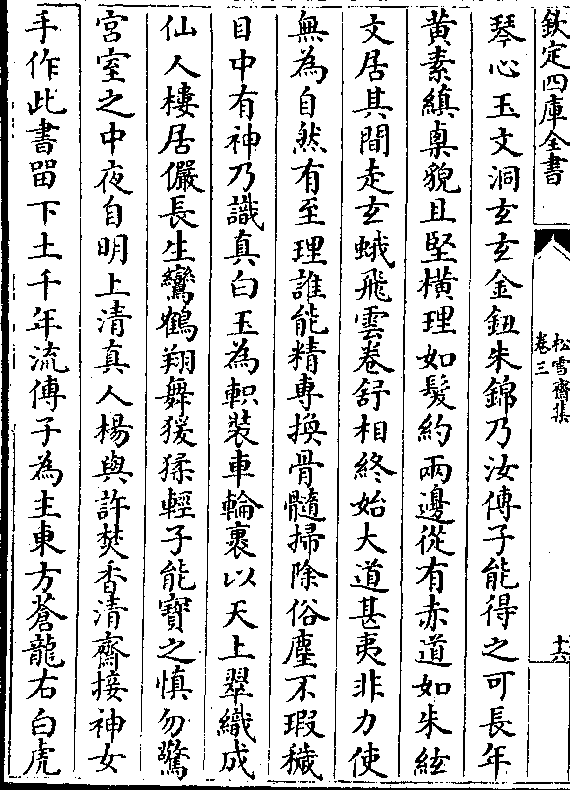 欽定四庫全書
松雪齋集
卷三
十六
琴心玉文洞玄玄金鈕朱錦乃汝傳子能得之可長年
黄素縝㮚貌且堅横理如髮約兩邊從有赤道如朱絃
文居其間走玄蛾飛雲卷舒相終始大道甚夷非力使
無為自然有至理誰能精專換骨髓掃除俗塵不瑕穢
目中有神乃識真白玉為軹裝車輪裹以天上翠織成
仙人樓居儼長生鸞鶴翔舞猨猱輕子能寶之慎勿驚
宫室之中夜自明上清真人楊與許焚香清齋接神女
手作此書留下土千年流傳子為主東方蒼龍右白虎